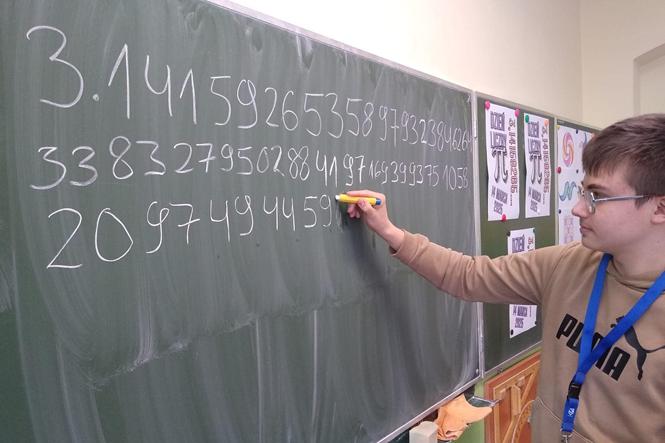 3.14159265358979323846264
33832795028841971693993751058
20974944459
DZIEŃ
LICZBY
π
DZIEŃ
LICZBY
π
14 MARCH
2025
14 MARCH
2025
PUMA